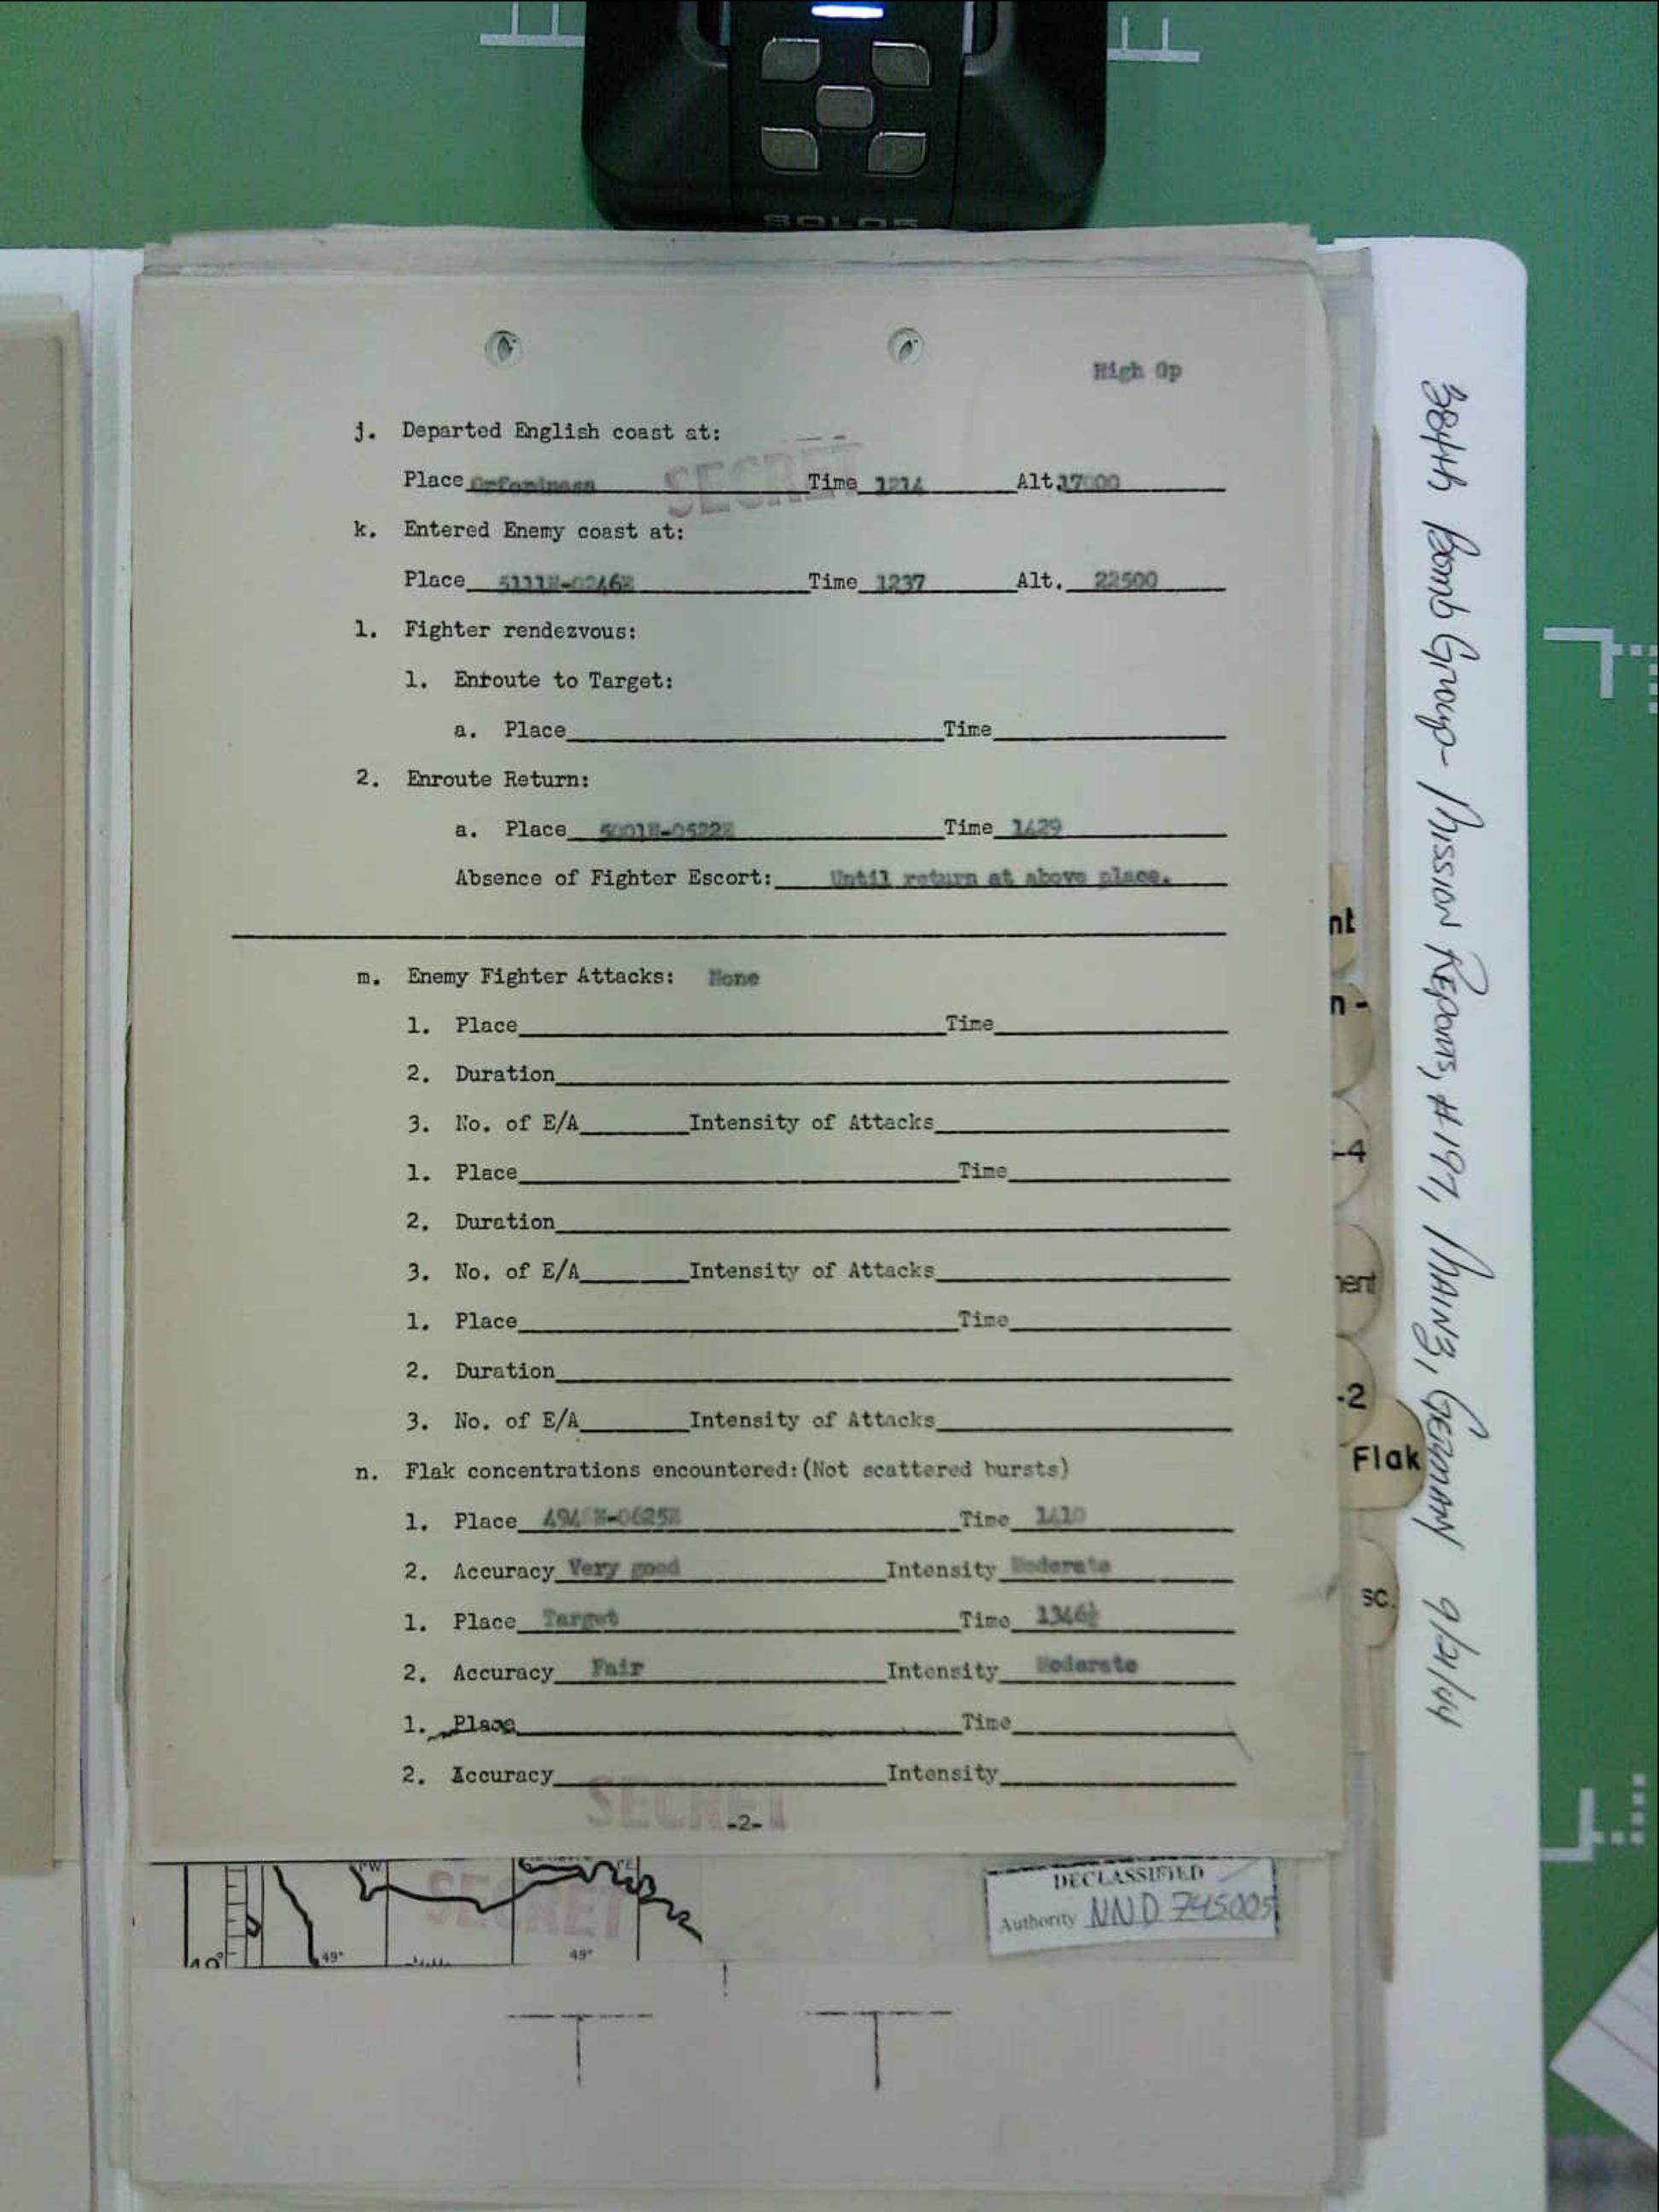 SOLOS
High Gp
j. Departed English coast at:
Place Orfordness Time 1214 Alt. 17000
SECRET
k. Entered Enemy coast at:
Place 5111N-0246E Time 1237 Alt. 22500
l. Fighter rendezvous:
1. Enroute to Target:
a. Place Time
2. Enroute Return:
a. Place 5001N-0522E Time 1429
Absence of Fighter Escort: Until return at above place.
m. Enemy Fighter Attacks: None
1. Place Time
2. Duration
3. No. of E/A Intensity of Attacks
1. Place Time
2. Duration
3. No. of E/A Intensity of Attacks
1. Place Time
2. Duration
3. No. of E/A Intensity of Attacks
n. Flak concentrations encountered:(Not scattered bursts)
1. Place Time 1410
2. Accuracy Very good Intensity Moderate
1. Place Target Time 1346½
2. Accuracy Fair Intensity Moderate
1. Place Time
2. Accuracy Intensity
SECRET
-2-
SECRET
49°
49°
DECLASSIFIED
Authority NND 745005
nt
n -
-4
ent
-2
Flak
sc.
384th Bomb Group- Mission Reports, #197, Mainz, Germany 9/21/44